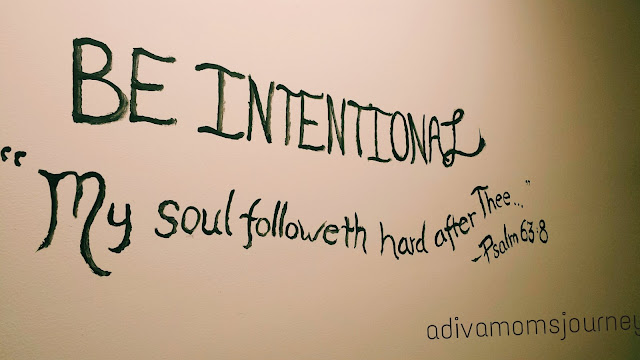 BE INTENTIONAL
"My soul followeth hard after Thee..."
-Psalm 63:8
adivamomsjourney